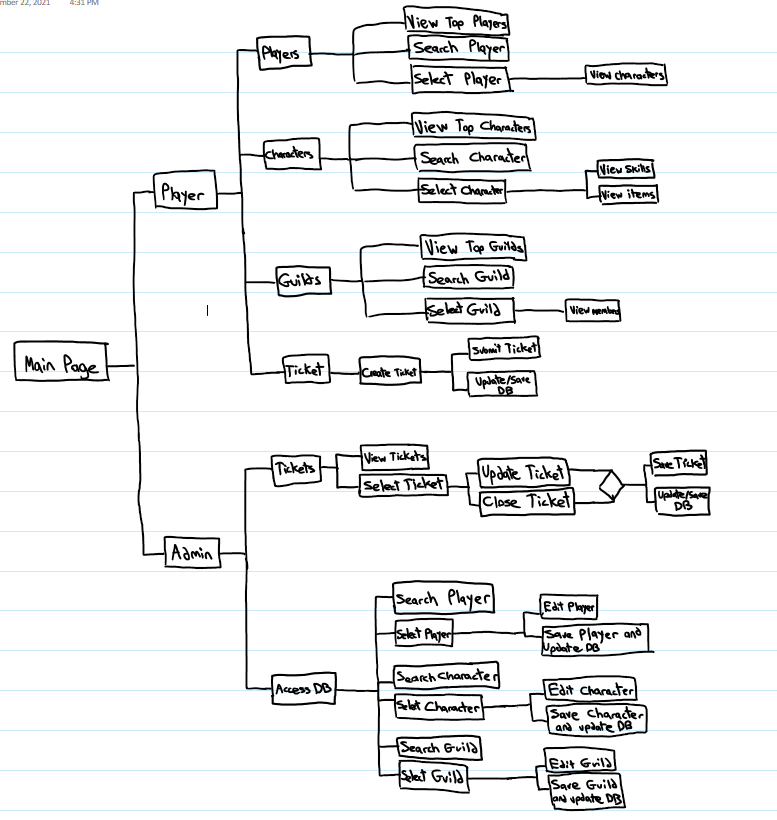 mber 22, 2021 4:31 PM
View Top Players
Players
Search Player
Select Player
View characters
View Top Characters
Characters
Search Character
Select Character
View Skills
View items
Player
View Top Guilds
Guilds
Search Guild
Select Guild
View members
Main Page
Ticket
Create Ticket
Submit Ticket
Update/Save
DB
Tickets
View Tickets
Select Ticket
Update Ticket
Close Ticket
Save Ticket
Update/Save
DB
Admin
Search Player
Select Player
Edit Player
Save Player and
Update DB
Access DB
Search Character
Select Character
Edit Character
Save Character
and update DB
Search Guild
Select Guild
Edit Guild
Save Guild
and update DB